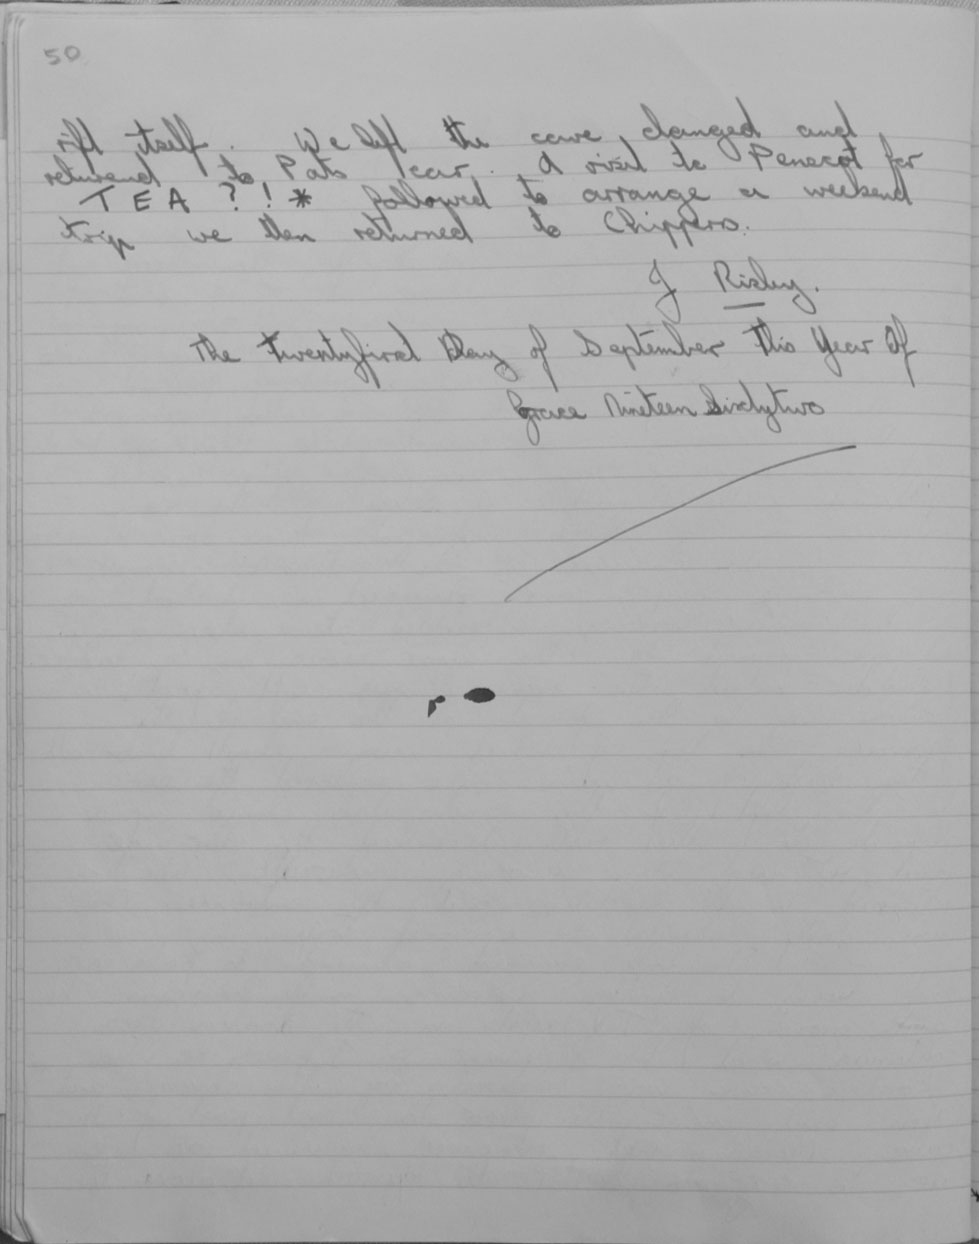 50
rift itself. We left the cave, changed and
returend to Pats car. A visit to Penscot for
TEA ? ! * followed to arrange a weekend
trip we then returned to Chippers.
J Risley.
The Twentyfirst Day of September this Year Of
Grace Nineteen Sixtytwo